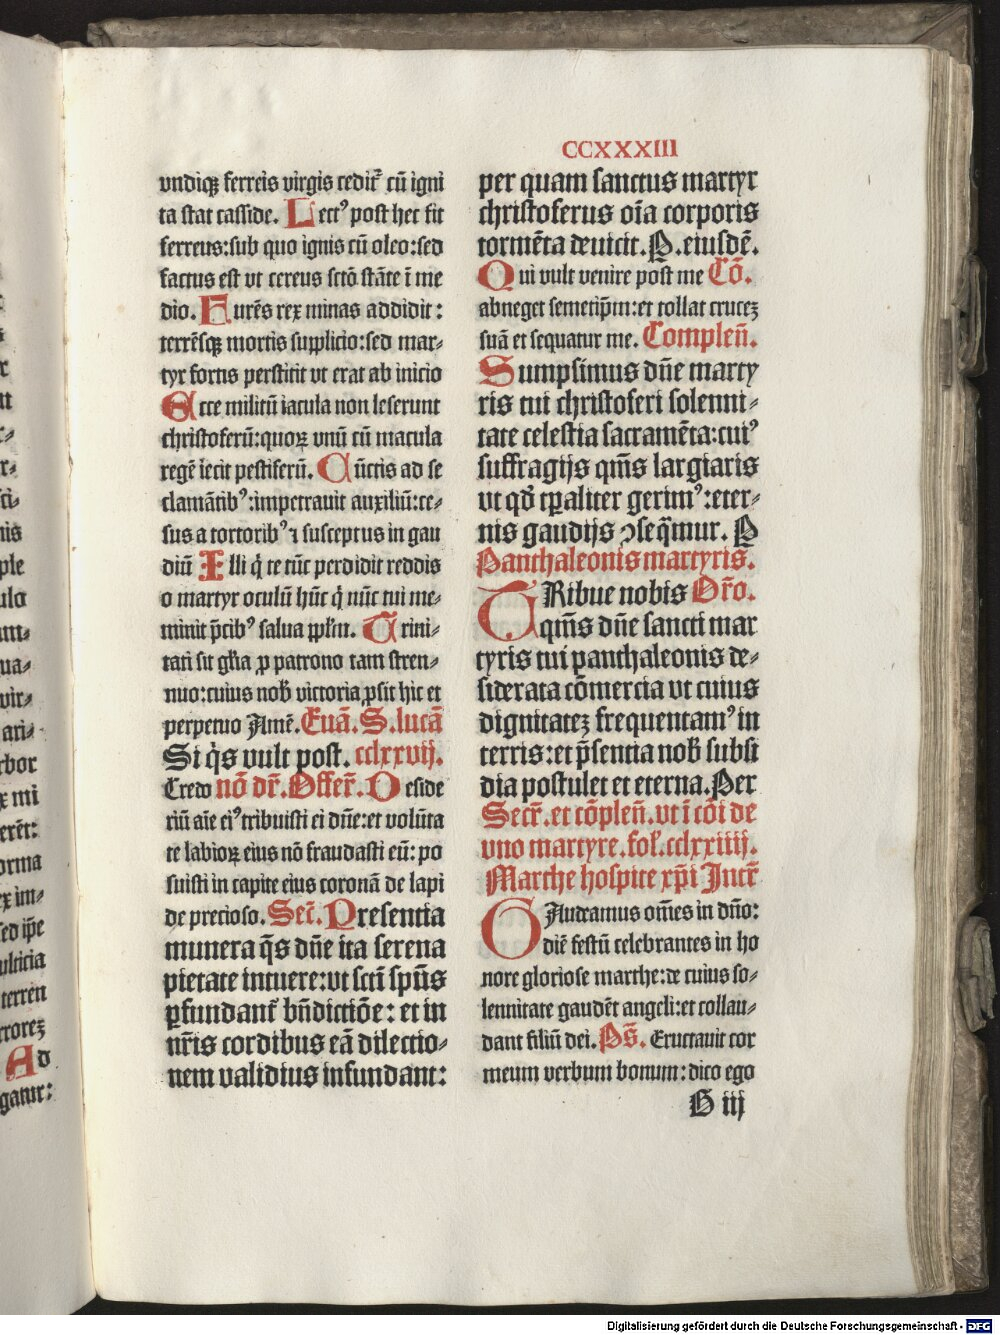 CCXXXIII
vndiqꝫ ferreis virgis cedit᷑ cū igni
ta stat casside. Lectꝰ post hec fit
ferreus:sub quo ignis cū oleo:sed
factus est vt cereus sctō stāte ī me
dio. Furēs rex minas addidit:
terrēsqꝫ mortis supplicio:sed mar⸗
tyr fortis perstitit vt erat ab inicio
Ecce militū iacula non leserunt
christoferū:quoꝝ vnū cū macula
regē iecit pestiferū. Cūctis ad se
clamātibꝰ:impetrauit auxiliū:ce⸗
sus a tortoribꝰ ⁊ susceptus in gau
diū Illi q̇ te tūc perdidit reddis
o martyr oculū hūc q̇ nūc tui me⸗
minit p̄cibꝰ salua pp̄lm. Trini⸗
tati sit gl̄ia ꝓ patrono tam stren⸗
nuo:cuius nob̄ victoria ꝓsit hic et
perpetuo Amē. Euā. S. lucā
Si q̇s vult post. cclxxvij.
Credo nō dr̄. Offer̄. Deside
riū aīe eiꝰ tribuisti ei dn̄e:et volūta
te labioꝝ eius nō fraudasti eū: po
suisti in capite eius coronā de lapi
de precioso. Sec̄. Presentia
munera q̄s dn̄e ita serena
pietate intuere:vt scti̅ spūs
ꝑfundant᷑ bn̄dictiōe: et in
nr̄is cordibus eā dilectio⸗
nem validius infundant:
per quam sanctus martyr
christoferus oīa corporis
tormēta deuicit. P. eiusdē.
Qui vult venire post me Cō.
abneget semetip̄m:et tollat cruceꝫ
suā et sequatur me. Complen̄.
Sumpsimus dn̄e marty
ris tui christoferi solenni⸗
tate celestia sacramēta:cuiꝰ
suffragijs qm̄s largiaris
vt qd̄ tp̄aliter gerimꝰ:eter⸗
nis gaudijs ꝯseq̄mur. P
Panthaleonis martyris.
TRibue nobis Or̄o.
qm̄s dn̄e sancti mar
tyris tui panthaleonis de⸗
siderata cōmercia vt cuius
dignitateꝫ frequentamꝰ in
terris:et p̄sentia nob̄ subsi
dia postulet et eterna. Per
Secr̄. et cōplen̄. vt ī cōi de
vno martyre. fol̄. cclxxiiij.
Marthe hospite xp̄i Intr̄
GAudeamus om̄es in dn̄o:
diē festū celebrantes in ho
nore gloriose marthe:de cuius so⸗
lennitate gaudēt angeli:et collau⸗
dant filiū dei. Ps̄. Eructauit cor
meum verbum bonum: dico ego
G iij
Digitalisierung gefördert durch die Deutsche Forschungsgemeinschaft - DFG